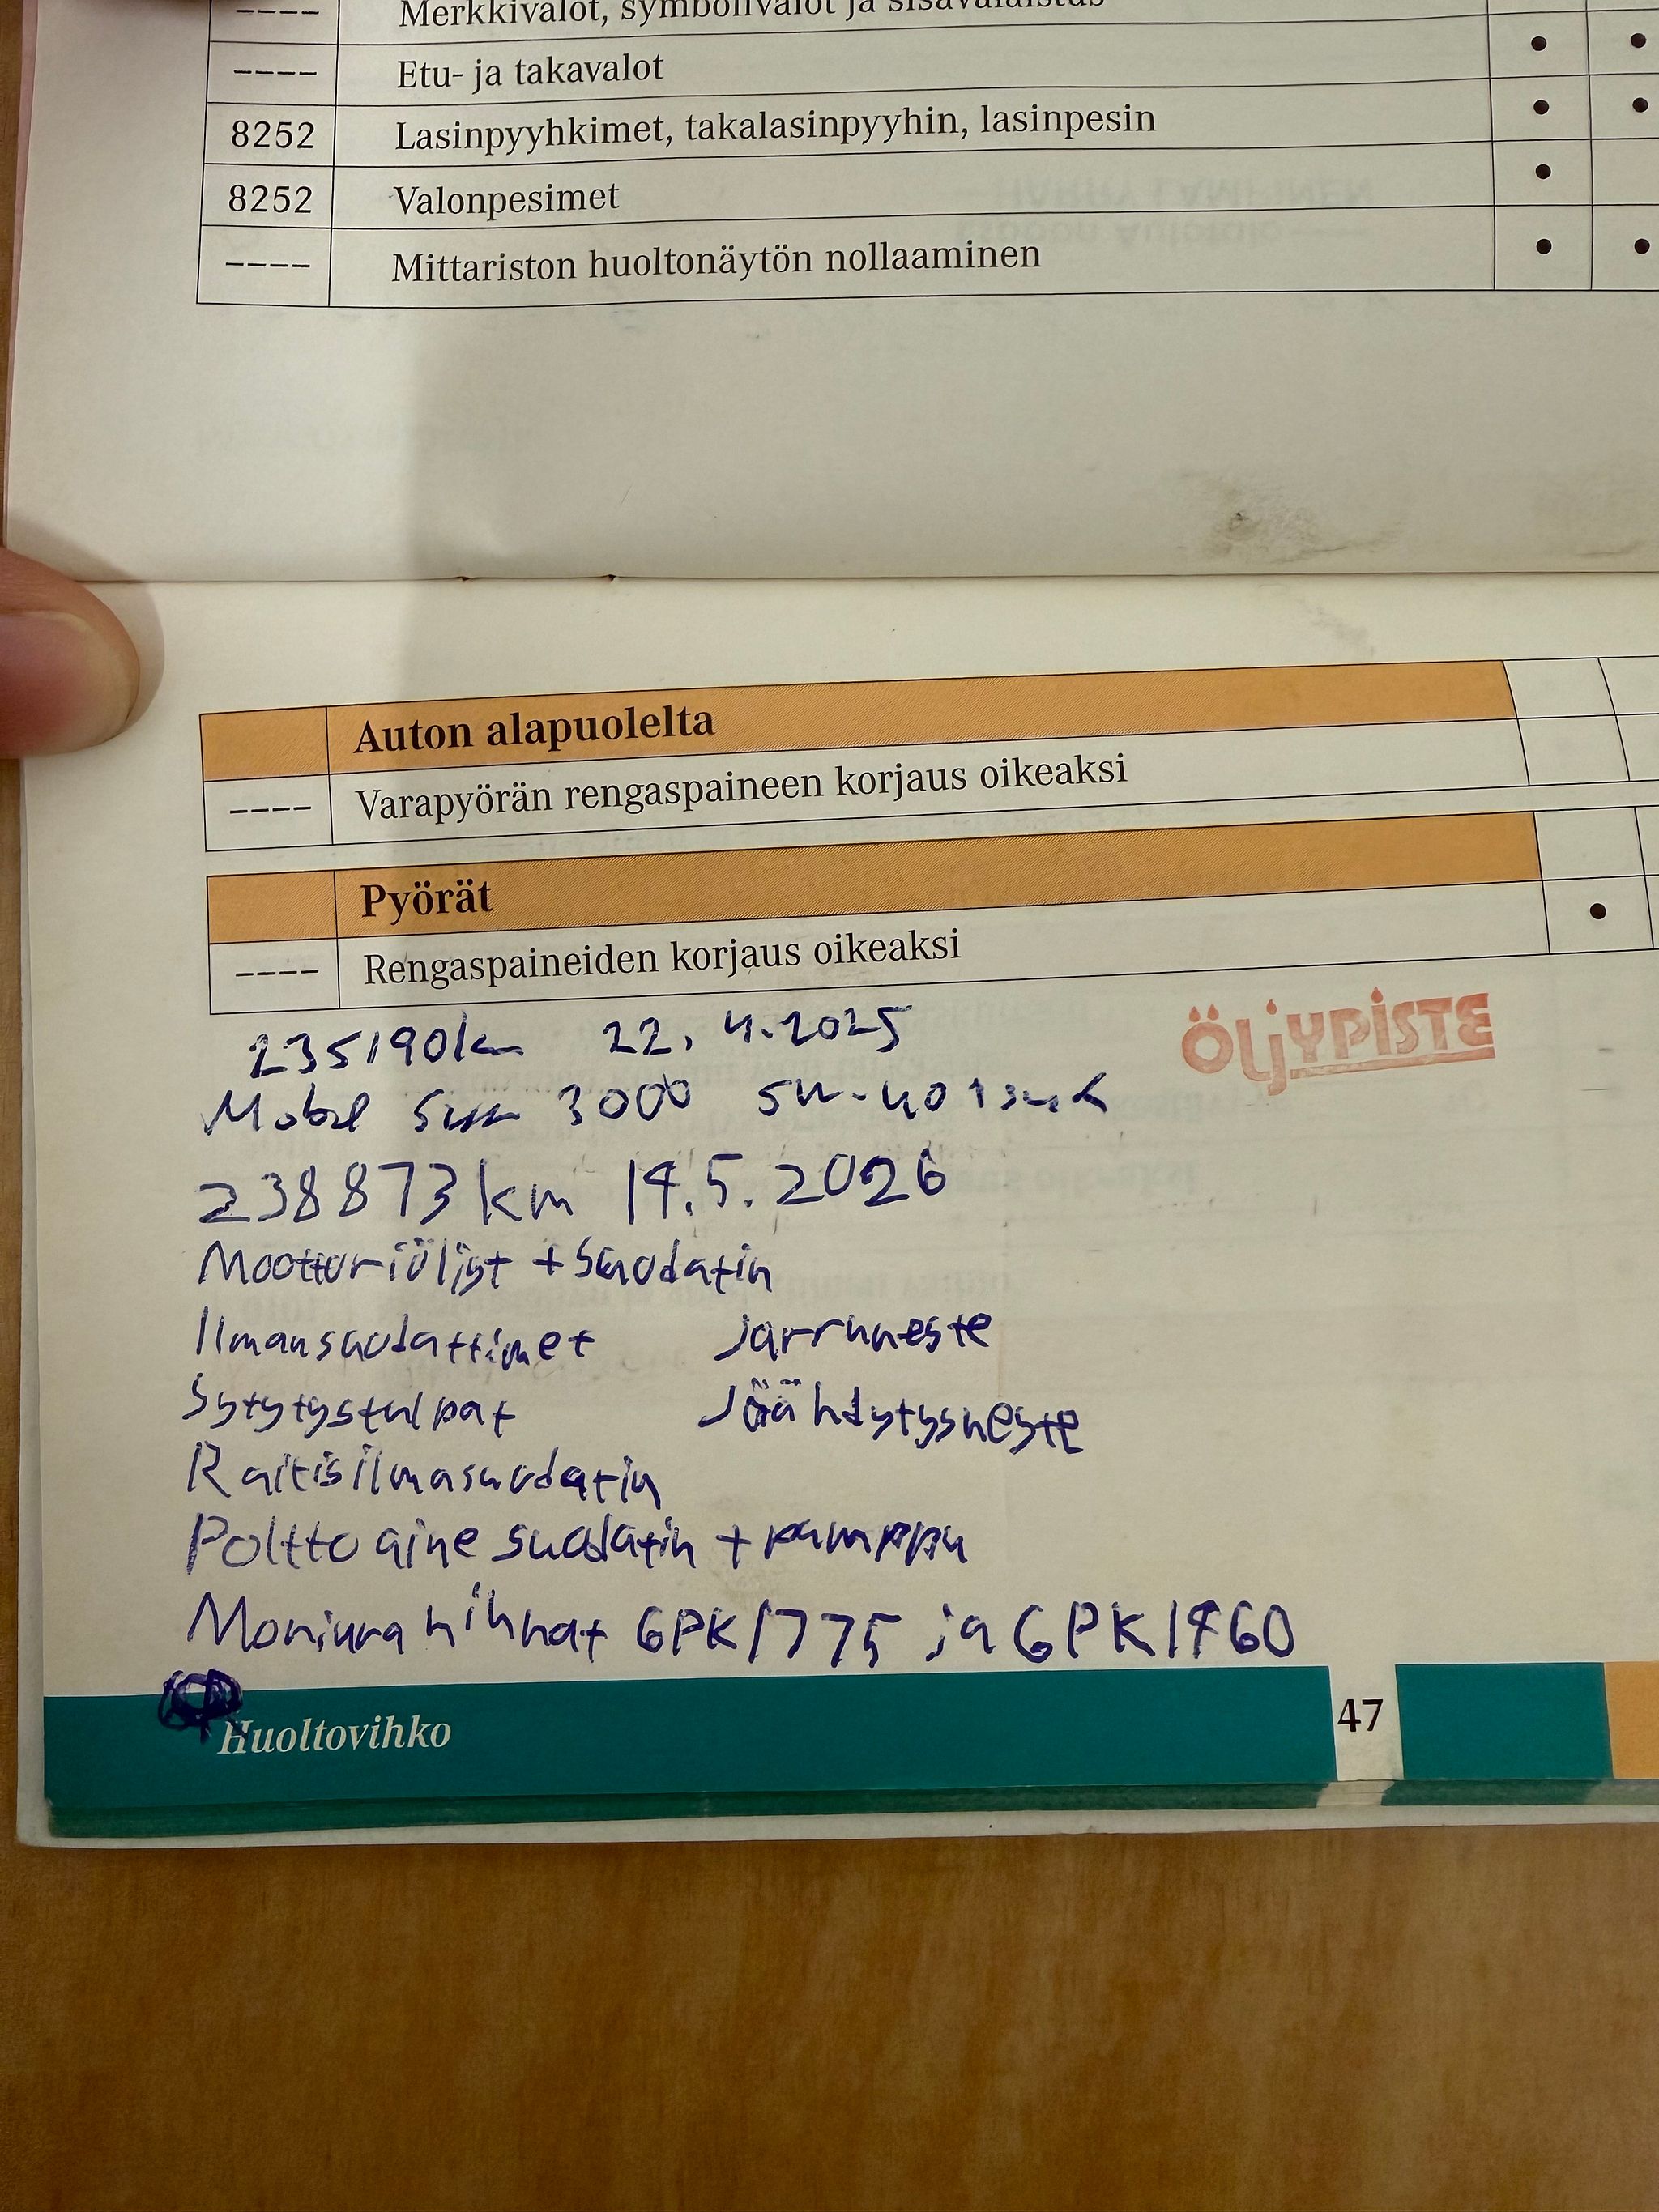 ---- Merkkivalot, symbolivalot ja sisävalaistus
---- Etu- ja takavalot • •
8252 Lasinpyyhkimet, takalasinpyyhin, lasinpesin • •
8252 Valonpesimet •
---- Mittariston huoltonäytön nollaaminen • •
Auton alapuolelta
---- Varapyörän rengaspaineen korjaus oikeaksi
Pyörät
---- Rengaspaineiden korjaus oikeaksi •
ÖLJYPISTE
235190km 22.4.2025
Mobil 3000 5W-40
238873km 14.5.2026
Moottoriöljyt + Suodatin
Ilmansuodattimet Jarruneste
Sytytystulpat Jäähdytysneste
Raitisilmasuodatin
Polttoaine suodatin + pumppu
Moniura hihnat 6PK1775 ja 6PK1460
Huoltovihko 47